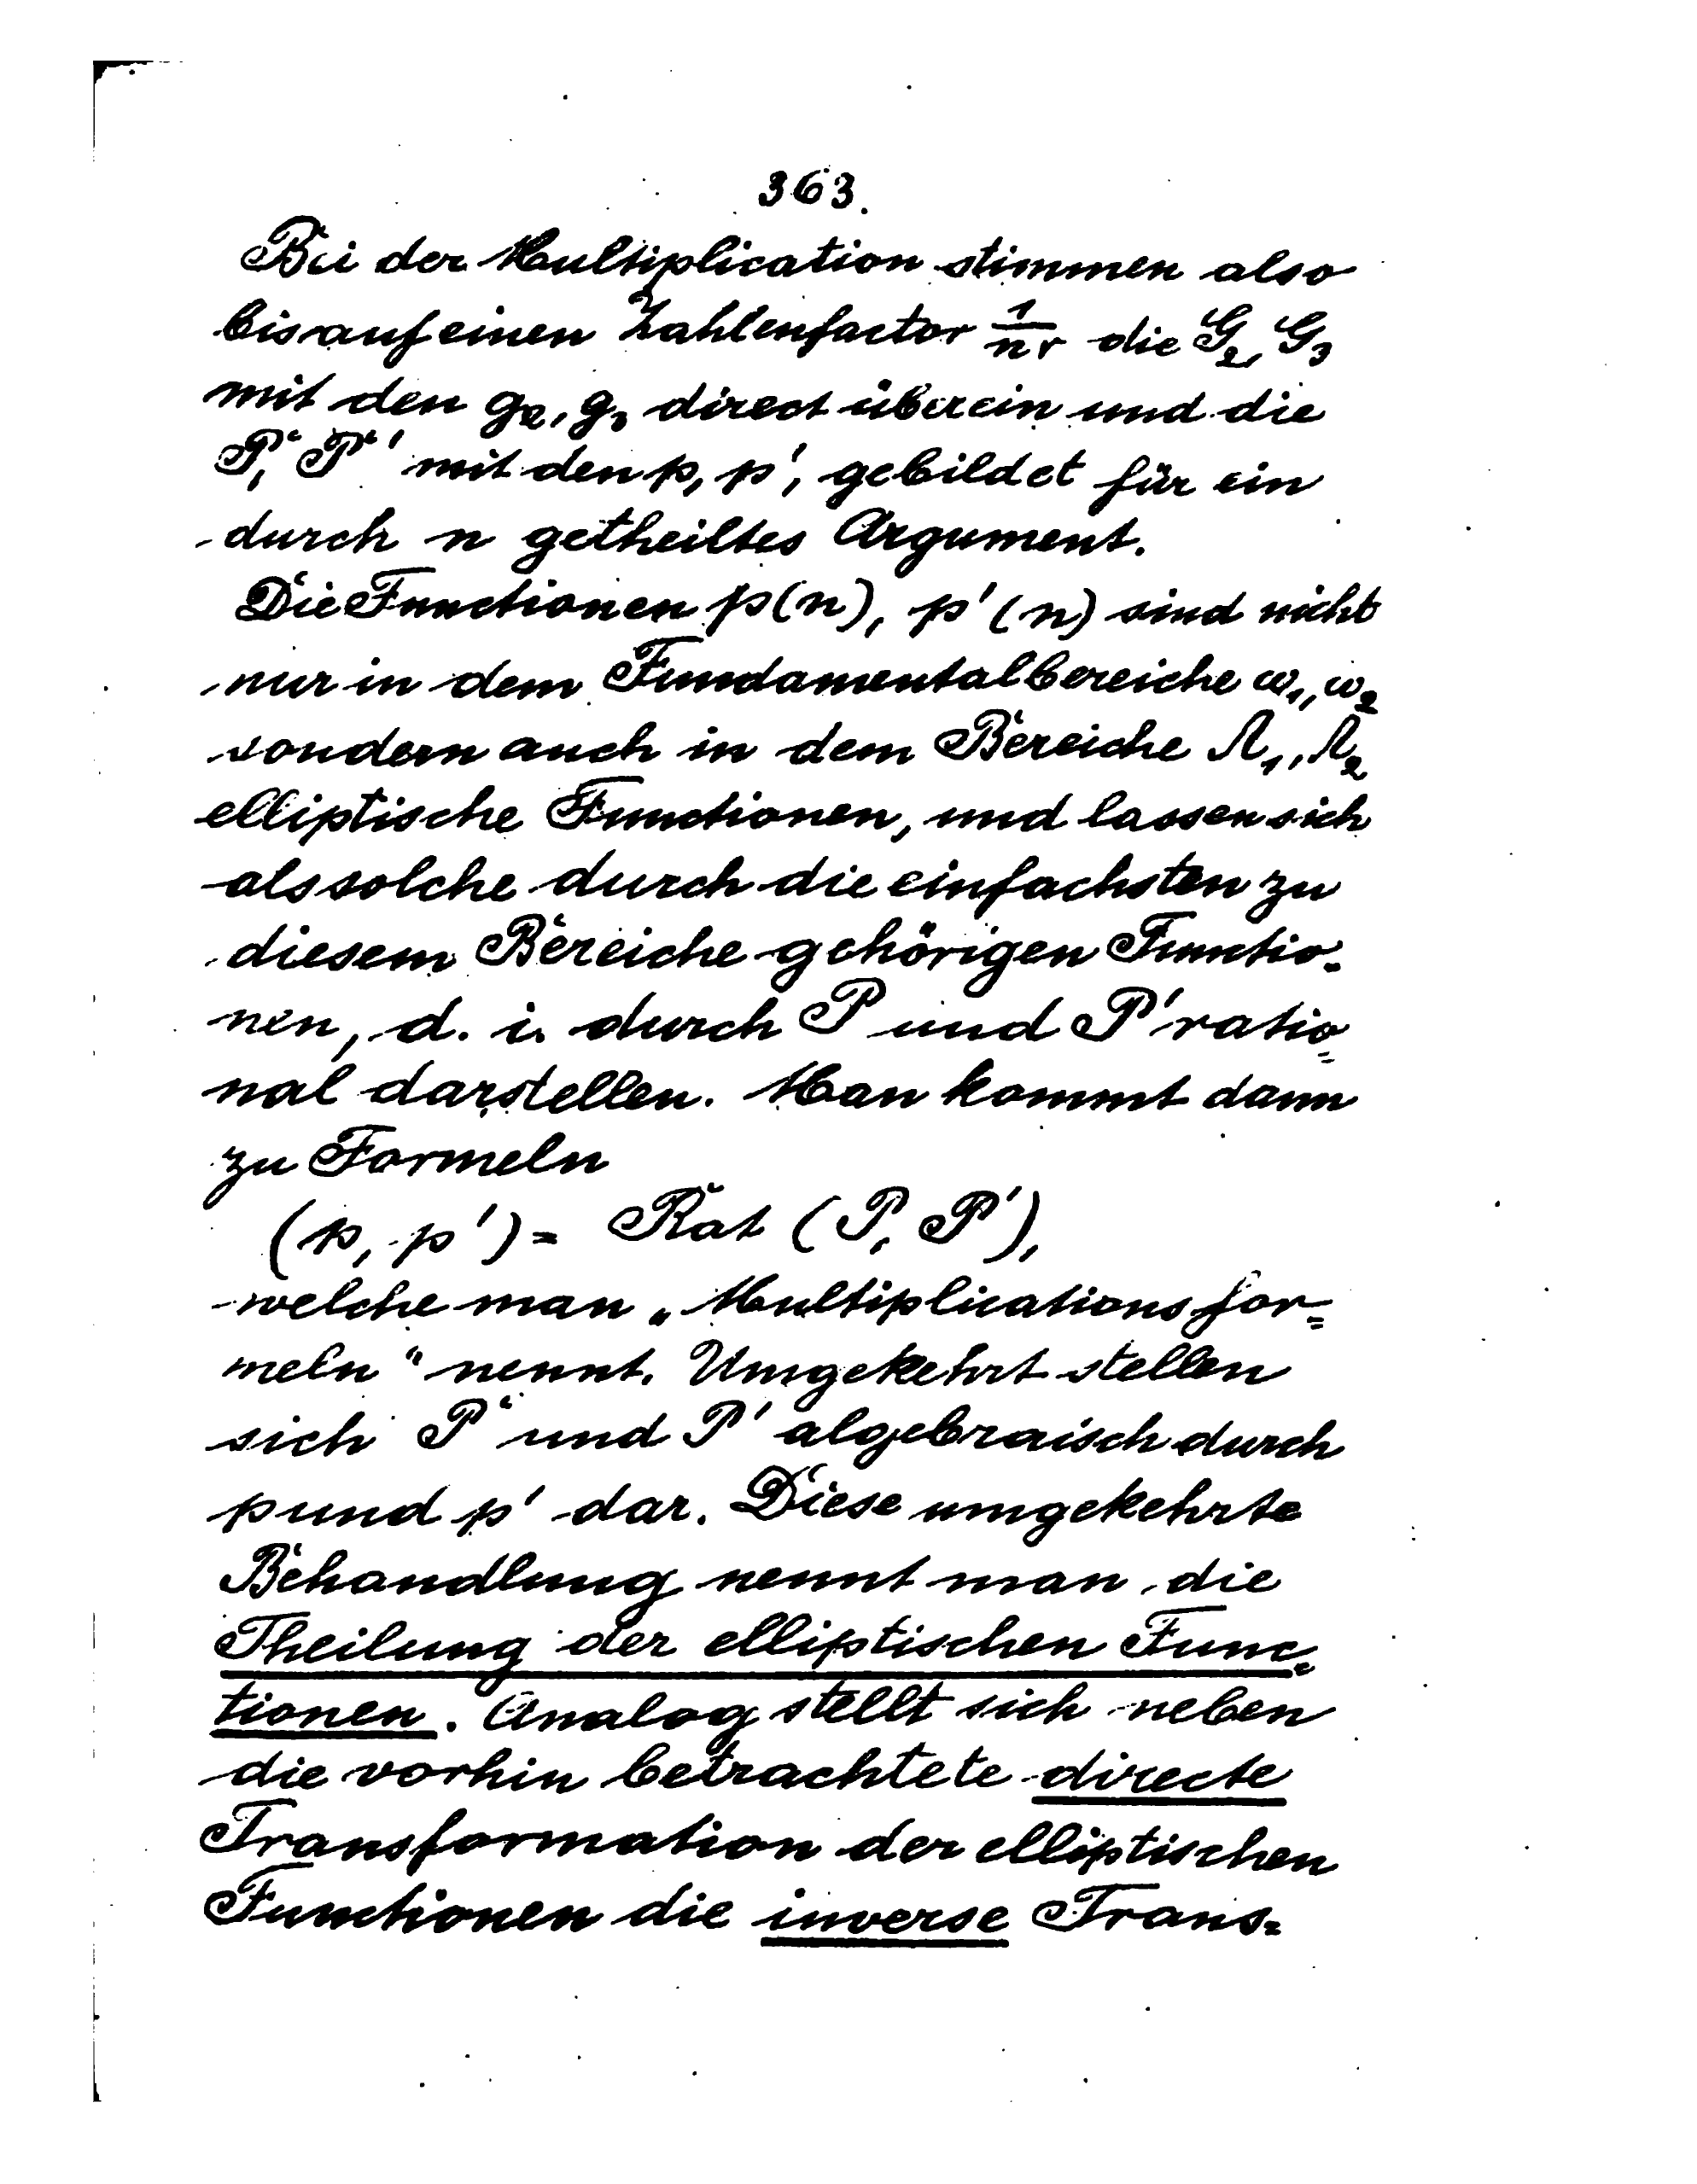 363.
Bei der Multiplication stimmen also
bis auf einen Zahlenfactor 1/n^r die G₂, G₃
mit den g₂, g₃ direct überein und die
P, P' mit den p, p', gebildet für ein
durch n getheiltes Argument.
Die Functionen p(u), p'(u) sind nicht
nur in dem Fundamentalbereiche ω₁, ω₂
sondern auch in dem Bereiche Ω₁, Ω₂
elliptische Functionen, und lassen sich
als solche durch die einfachsten zu
diesem Bereiche gehörigen Functio-
nen, d. i. durch P und P' ratio=
nal darstellen. Man kommt dann
zu Formeln
(p, p') = Rat (P, P'),
welche man „Multiplicationsfor=
meln“ nennt. Umgekehrt stellen
sich P und P' algebraisch durch
p und p' dar. Diese umgekehrte
Behandlung nennt man die
Theilung der elliptischen Func=
tionen. Analog stellt sich neben
die vorhin betrachtete directe
Transformation der elliptischen
Functionen die inverse Trans=